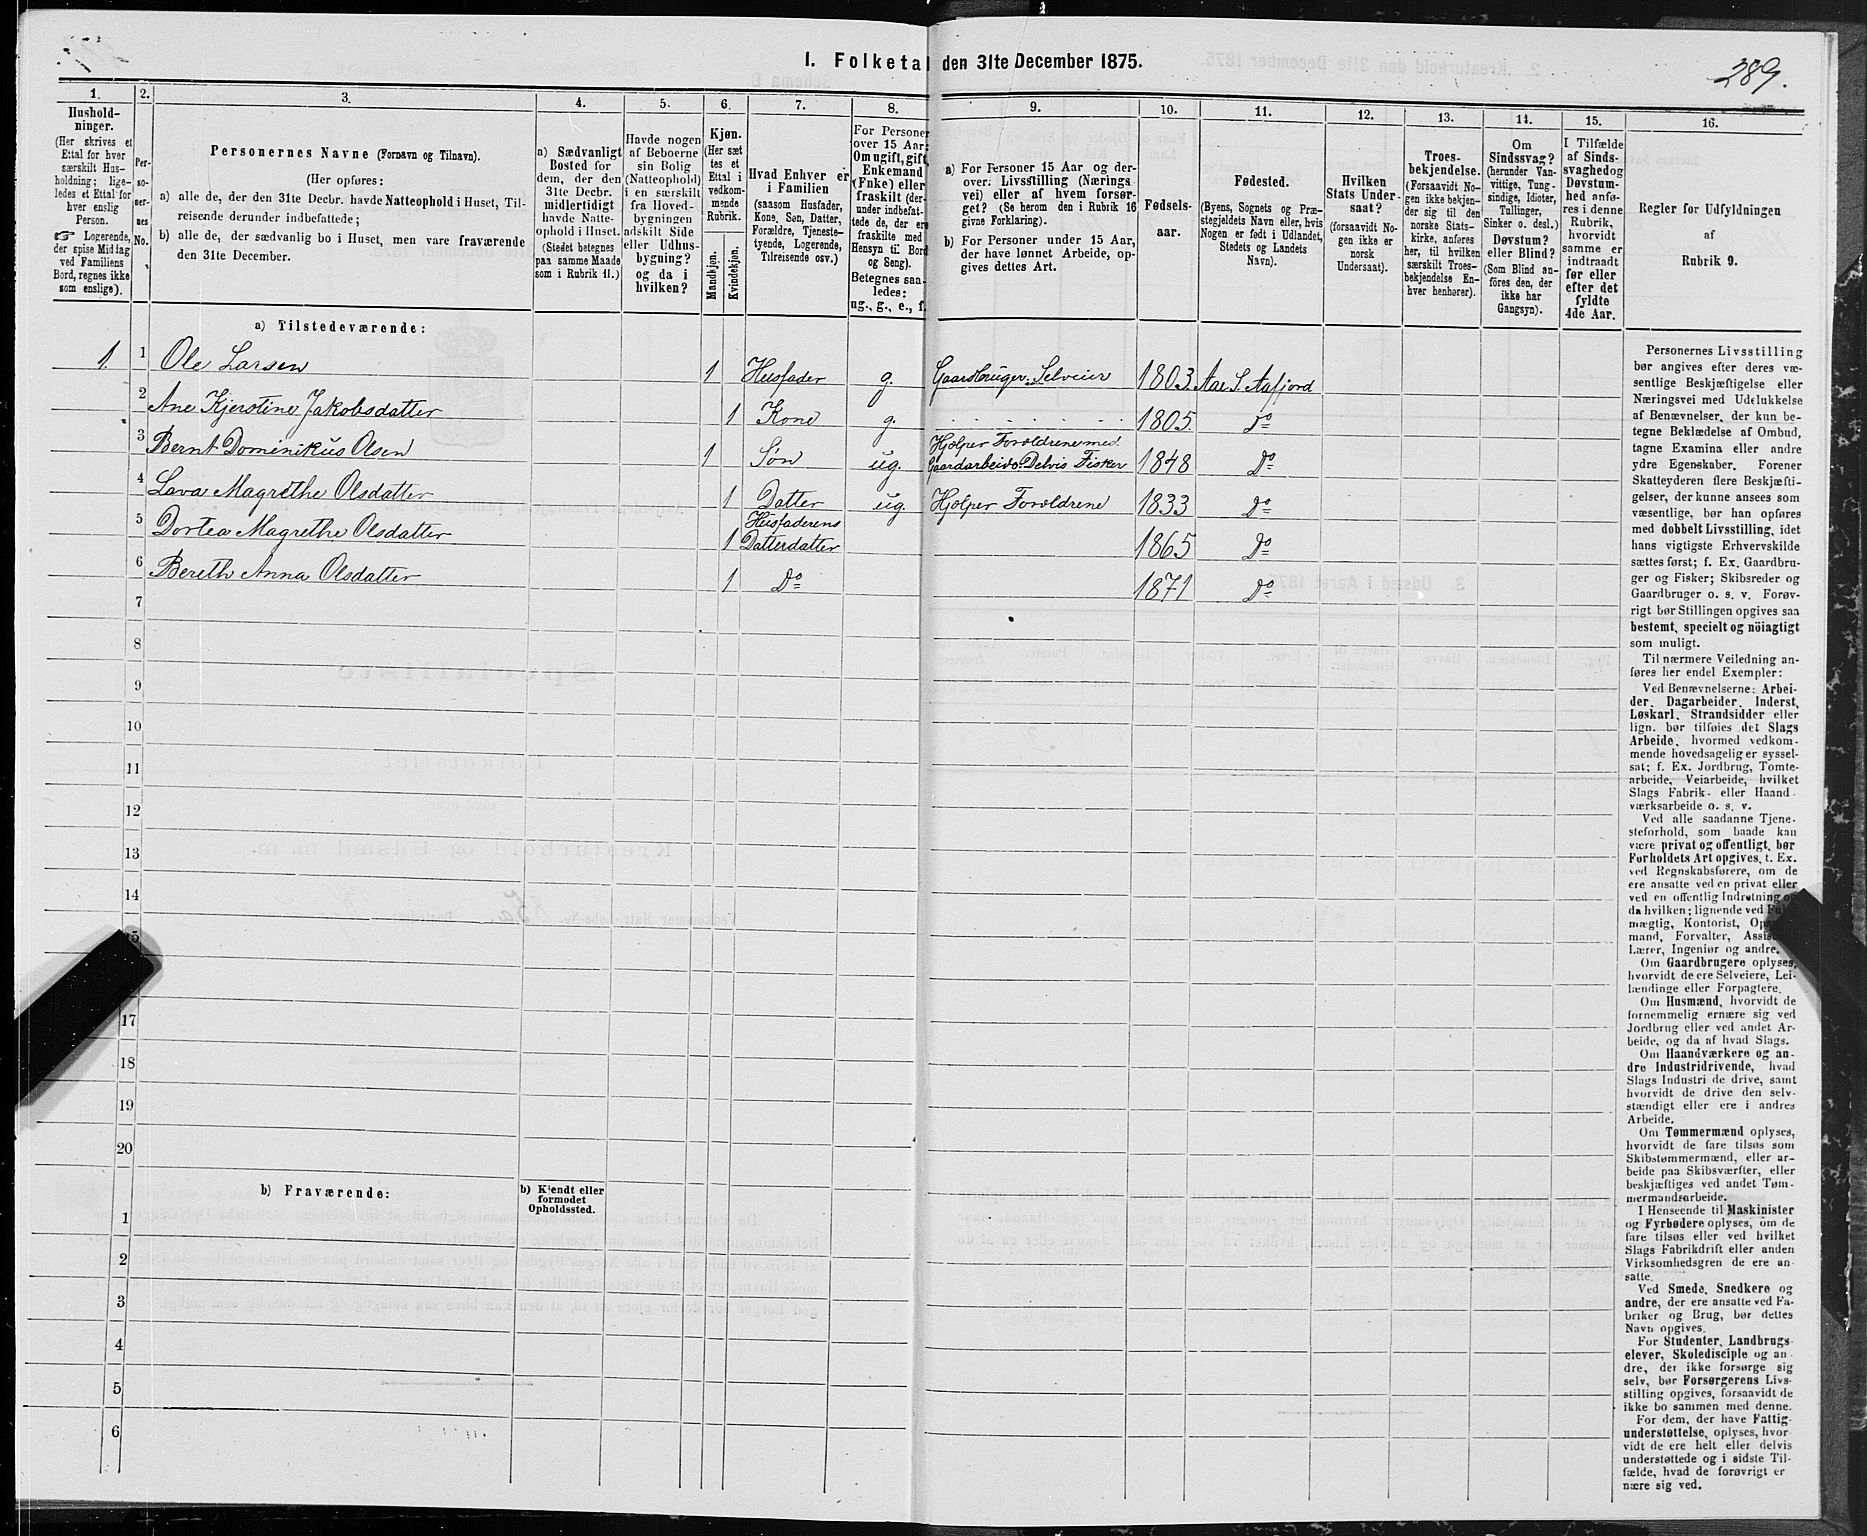 1. Folketal den 31te December 1875.
289.
1.
Hushold-
ninger.
(Her skrives et
Ettal for hver
særskilt Hus-
holdning; lige-
ledes et Ettal for
hver enslig
Person.
☞ Logerende,
der spise Middag
ved Familiens
Bord, regnes ikke
som enslige).
2.
Per-
so-
ner-
nes
No.
3.
Personernes Navne (Fornavn og Tilnavn).
(Her opføres:
a) alle de, der den 31te Decbr. havde Natteophold i Huset, Til-
reisende derunder indbefattede;
b) alle de, der sædvanlig bo i Huset, men vare fraværende
den 31te December.
4.
a) Sædvanligt
Bosted for
dem, der den
31te Decbr.
midlertidigt
havde Natte-
ophold i Huset.
(Stedet betegnes
paa samme Maade
som i Rubrik 11.)
5.
Havde nogen
af Beboerne
sin Bolig
(Natteophold)
i en særskilt
fra Hoved-
bygningen
adskilt Side
eller Udhus-
bygning?
og da i
hvilken?
6.
Kjøn.
(Her sæt
tes et
Ettal i
vedkom-
mende
Rubrik.
Mandkjøn.
Kvindekjøn.
7.
Hvad Enhver er
i Familien
(saasom Husfader,
Kone, Søn, Datter,
Forældre, Tjeneste-
tyende, Logerende,
Tilreisende osv.)
8.
For Personer
over 15 Aar:
Om ugift, gift,
Enkemand
(Enke) eller
fraskilt (der-
under indbefat-
tede de, der ere
fraskilte med
Hensyn til Bord
og Seng).
Betegnes saa-
ledes:
ug., g., e., f.
9.
a) For Personer 15 Aar og der-
over: Livsstilling (Nærings
vei) eller af hvem forsør-
get? (Se herom den i Rubrik 16
givne Forklaring).
b) For Personer under 15 Aar,
der have lønnet Arbeide, op-
gives dettes Art.
10.
Fødsels-
aar.
11.
Fødested.
(Byens, Sognets og Præ-
stegjeldets Navn eller, hvis
Nogen er født i Udlandet,
Stedets og Landets
Navn).
12.
Hvilken
Stats Under-
saat?
(forsaavidt No-
gen ikke er
norsk
Undersaat).
13.
Troes-
bekjendelse.
(Forsaavidt No-
gen ikke bekjen-
der sig til den
norske Stats-
kirke, anføres
her, til hvilken
særskilt Troes-
bekjendelse En-
hver henhører).
14.
Om
Sindssvag?
(herunder Van-
vittige, Tung-
sindige, Idioter,
Tullinger,
Sinker o. desl.)
Døvstum?
eller Blind?
(Som Blind an-
føres den, der
ikke har
Gangsyn).
15.
I Tilfælde
af Sinds-
svaghed og
Døvstum-
hed anfø-
res i denne
Rubrik,
hvorvidt
samme er
indtraadt
før eller
efter det
fyldte
4de Aar.
16.
Regler for Udfyldningen
af
Rubrik 9.
a) Tilstedeværende:
1. 1 Ole Larsen 1 Husfader g. Gaardbruger Selveier 1803 Aae S. Aafjord
2 Ane Kjerstine Jakobsdatter 1 Kone g. 1805 Do
3 Bernt Dominikus Olsen 1 Søn ug. Hjælper Forældrene med
Gaardarbeide. Delvis Fisker 1848 Do
4 Lava Magrethe Olsdatter 1 Datter ug Hjælper Forældrene 1833 Do
5 Dortea Magrethe Olsdatter 1 Husfaderens
Datterdatter 1865 Do
6 Bereth Anna Olsdatter 1 Do 1871 Do
7
8
9
10
11
12
13
14
15
17
18
19
20
b) Fraværende:
b) Kjendt eller
formodet
Opholdssted.
1
2
3
4
5
6
Personernes Livsstilling
bør angives efter deres væ-
sentlige Beskjæftigelse eller
Næringsvei med Udelukkelse
af Benævnelser, der kun be-
tegne Beklædelse af Ombud,
tagne Examina eller andre
ydre Egenskaber. Forener
Skatteyderen flere Beskjæfti-
gelser, der kunne ansees som
væsentlige, bør han opføres
med dobbelt Livsstilling, idet
hans vigtigste Erhvervskilde
sættes først; f. Ex. Gaardbru-
ger og Fisker; Skibsreder og
Gaardbruger o. s. v. Forøv-
rigt bør Stillingen opgives saa
bestemt, specielt og nöiagtigt
som muligt.
Til nærmere Veiledning an-
føres her endel Exempler:
Ved Benævnelserne: Arbei-
der, Dagarbeider, Inderst,
Løskarl, Strandsidder eller
lign. bør tilføies det Slags
Arbeide, hvormed vedkom-
mende hovedsagelig er syssel-
sat; f. Ex. Jordbrug, Tomte-
arbeide, Veiarbeide, hvilket
Slags Fabrik- eller Haand-
værksarbeide o. s. v.
Ved alle saadanne Tjene-
steforhold, som baade kan
være privat og offentligt, bør
Forholdets Art opgives, t. Ex.
ved Regnskabsførere, om de
ere ansatte ved en privat eller
ved en offentlig Indretning og
da hvilken; lignende ved
mægtig, Kontorist,
mand, Forvalter,
Lærer, Ingeniør og andre.
Om Gaardbrugere oplyses,
hvorvidt de ere Selveiere, Lei-
lændinge eller Forpagtere.
Om Husmænd, hvorvidt de
fornemmelig ernære sig ved
Jordbrug eller ved andet Ar-
beide, og da af hvad Slags.
Om Haandværkere og an-
dre Industridrivende, hvad
Slags Industri de drive, samt
hvorvidt de drive den selv-
stændigt eller ere i andres
Arbeide.
Om Tømmermænd oplyses,
hvorvidt de fare tilsøs som
Skibstømmermænd, eller ar-
beide paa Skibsværfter, eller
beskjæftiges ved andet Tøm-
mermandsarbeide.
I Henseende til Maskinister
og Fyrbødere oplyses, om de
fare tilsøs eller ved hvilket
Slags Fabrikdrift eller anden
Virksomhedsgren de ere an-
satte.
Ved Smede, Snedkere og
andre, der ere ansatte ved Fa-
briker og Brug, bør dettes
Navn opgives.
For Studenter, Landbrugs-
elever, Skoledisciple og an-
dre, der ikke forsørge sig
selv, bør Forsørgerens Livs-
stilling opgives, forsaavidt de
ikke bo sammen med denne.
For dem, der have Fattig-
understøttelse, oplyses, hvor-
vidt de ere helt eller delvis
understøttede og i sidste Til-
fælde, hvad de forøvrigt er
nære sig ved.